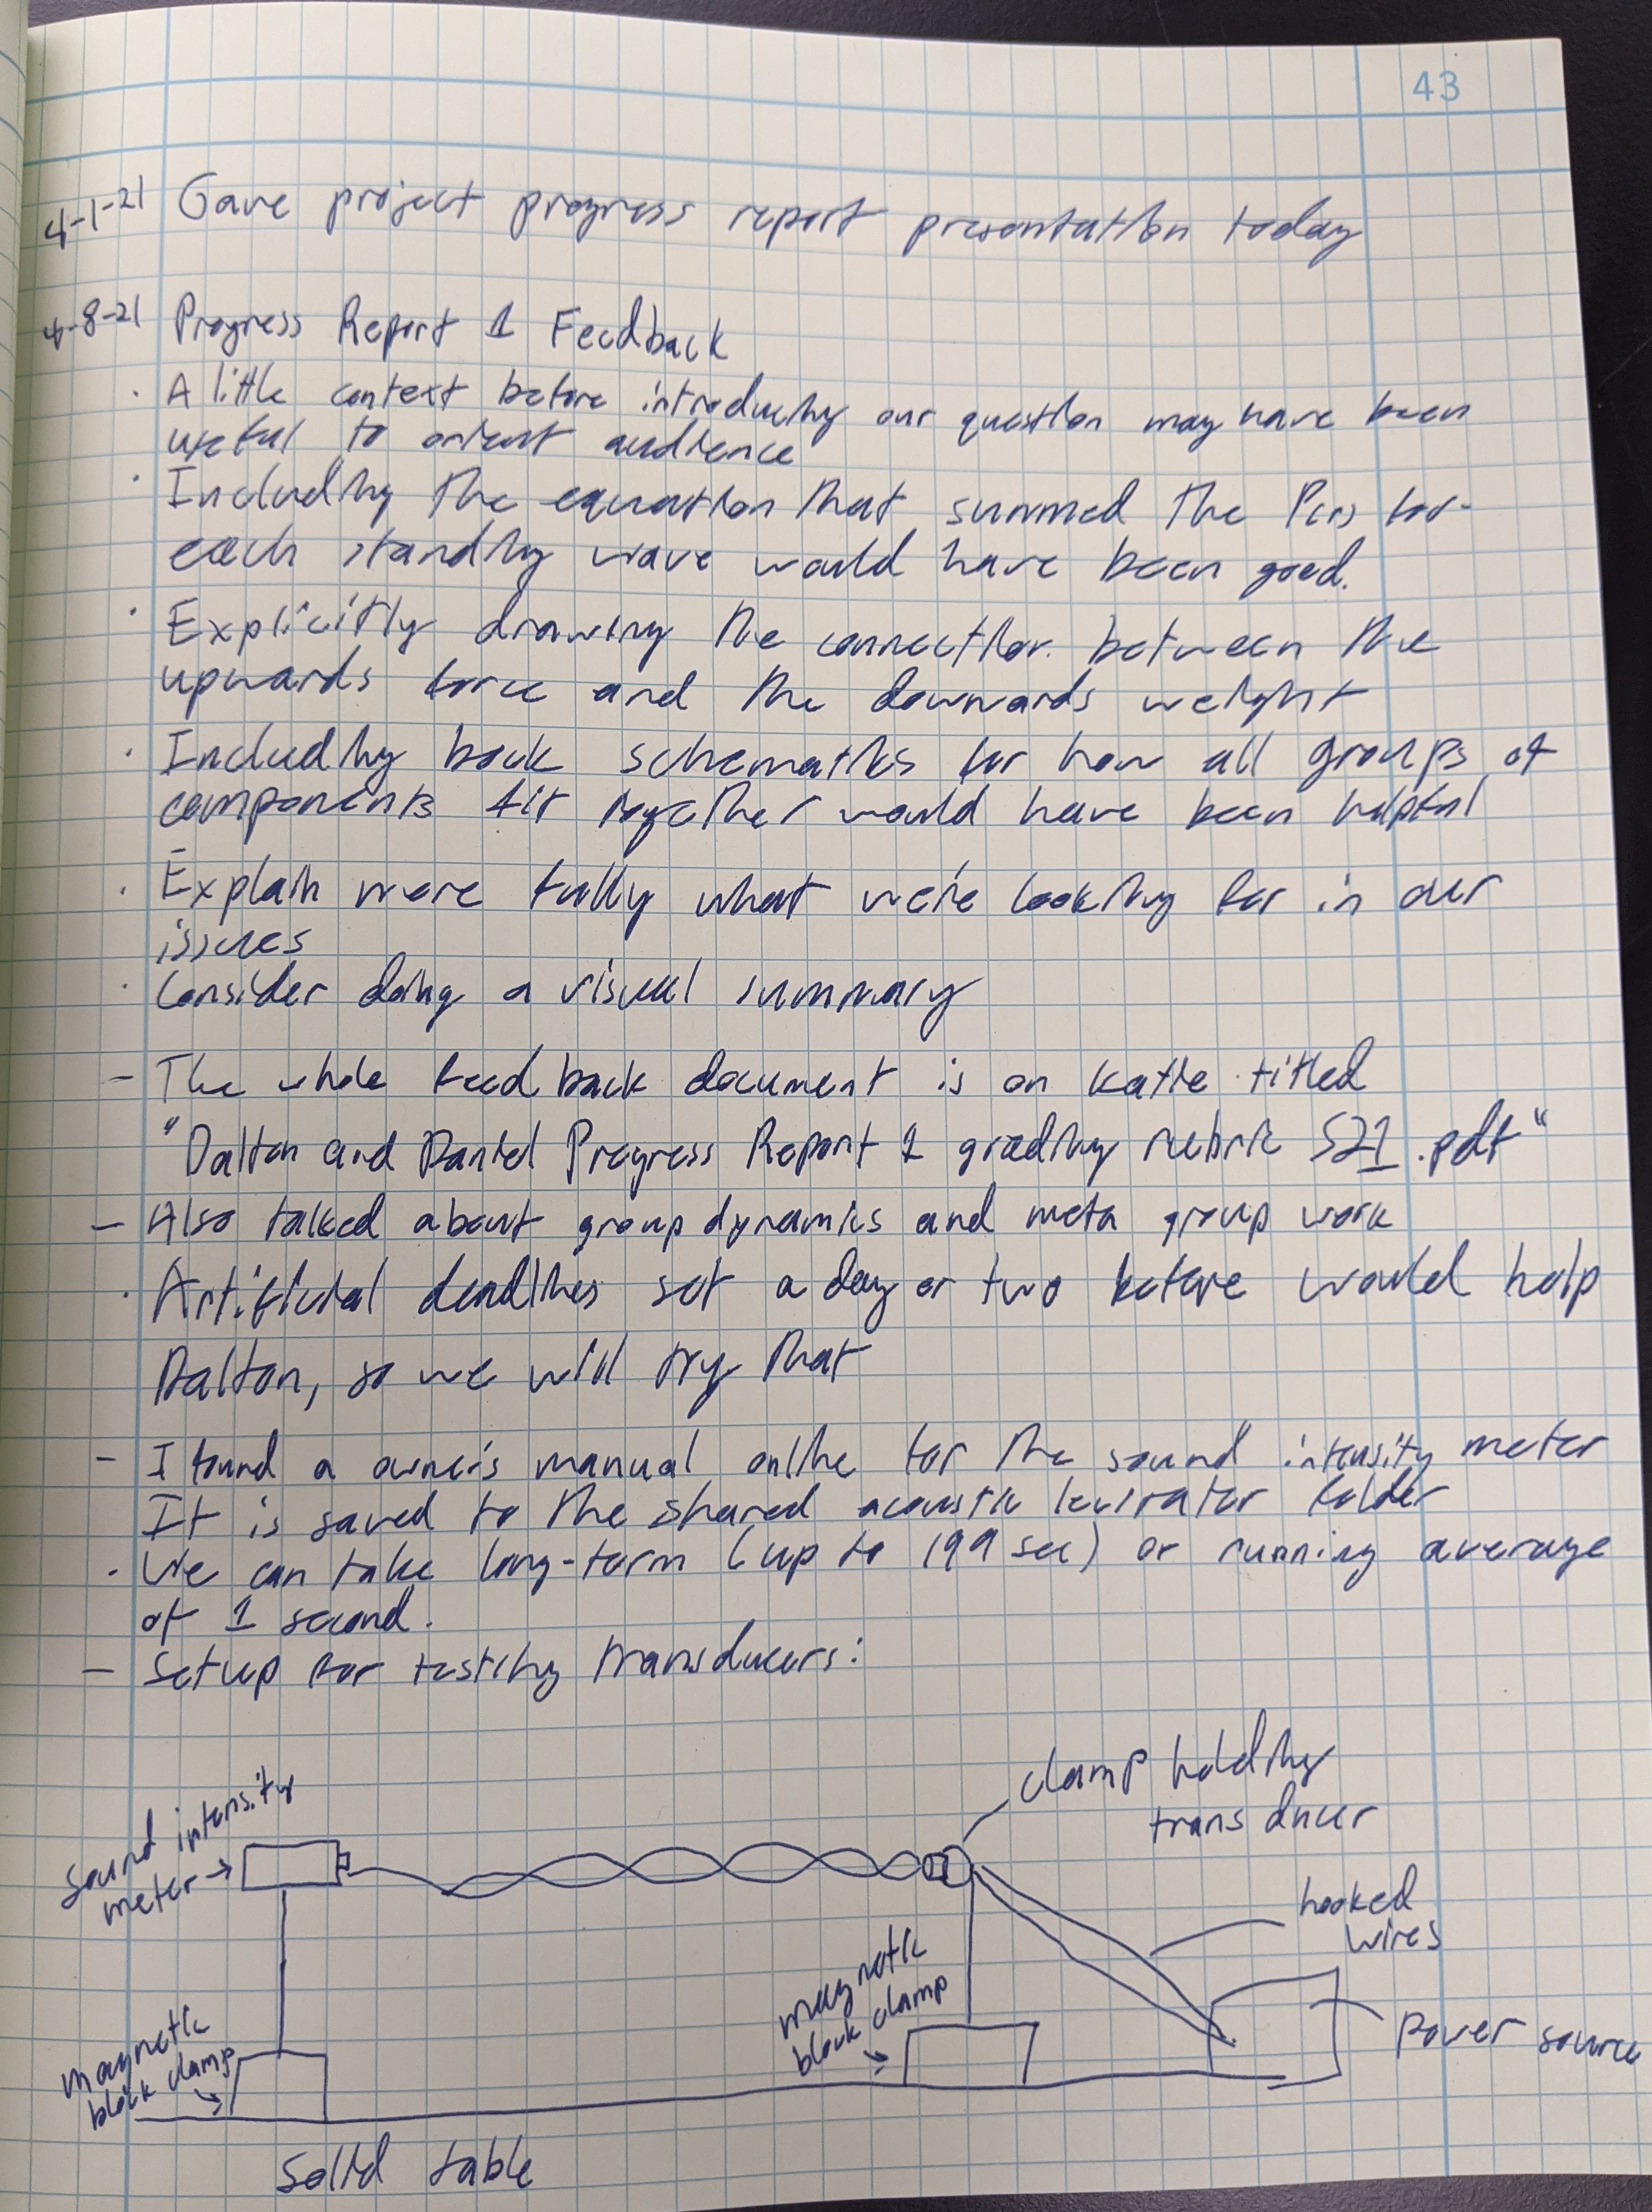 43
4-1-21 Gave project progress report presentation today
4-8-21 Progress Report 1 Feedback
· A little context before introducing our question may have been
useful to orient audience
· Including the equation that summed the for
each standing wave would have been good.
· Explicitly drawing the connection between the
upwards force and the downwards weight
· Including schematics for how all groups of
components fit together would have been helpful
· Explain more fully what we're looking for in our
issues
· Consider doing a visual summary
- The whole feedback document is on titled
"Dalton and Daniel Progress Report 1 grading rubric S21.pdf"
- Also talked about group dynamics and meta group work
· Artificial deadlines set a day or two before would help
Dalton, so we will try that
- I found a owner's manual online for the sound intensity meter
It is saved to the shared acoustic levitator folder
· We can take long-term (up to 199 sec) or running average
of 1 second.
- Setup for testing transducers:
clamp holding
transducer
sound intensity
meter →
hooked
wires
magnetic
block clamp
power source
magnetic
block clamp
Solid table